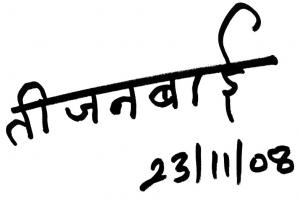 तीजनबाई
23/11/08